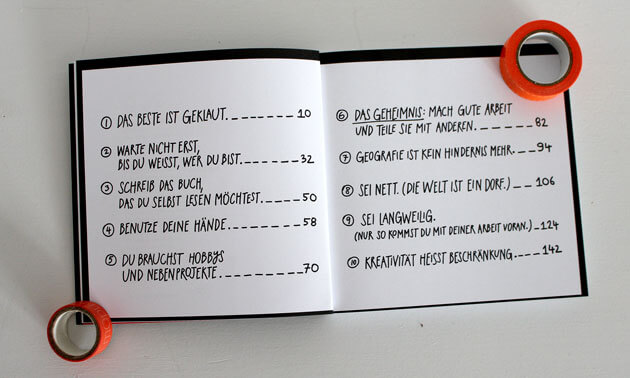 ① DAS BESTE IST GEKLAUT. _ _ _ _ _ _ _ 10
② WARTE NICHT ERST,
BIS DU WEISST, WER DU BIST. _ _ _ _ _ 32
③ SCHREIB DAS BUCH,
DAS DU SELBST LESEN MÖCHTEST. _ _ _ _ 50
④ BENUTZE DEINE HÄNDE. _ _ _ _ _ _ _ 58
⑤ DU BRAUCHST HOBBYS
UND NEBENPROJEKTE. _ _ _ _ _ _ _ _ 70
⑥ DAS GEHEIMNIS: MACH GUTE ARBEIT
UND TEILE SIE MIT ANDEREN. _ _ _ _ _ 82
⑦ GEOGRAFIE IST KEIN HINDERNIS MEHR. _ _ _ 94
⑧ SEI NETT. (DIE WELT IST EIN DORF.) _ _ 106
⑨ SEI LANGWEILIG.
(NUR SO KOMMST DU MIT DEINER ARBEIT VORAN.) _ 124
⑩ KREATIVITÄT HEISST BESCHRÄNKUNG. _ _ _ _ 142